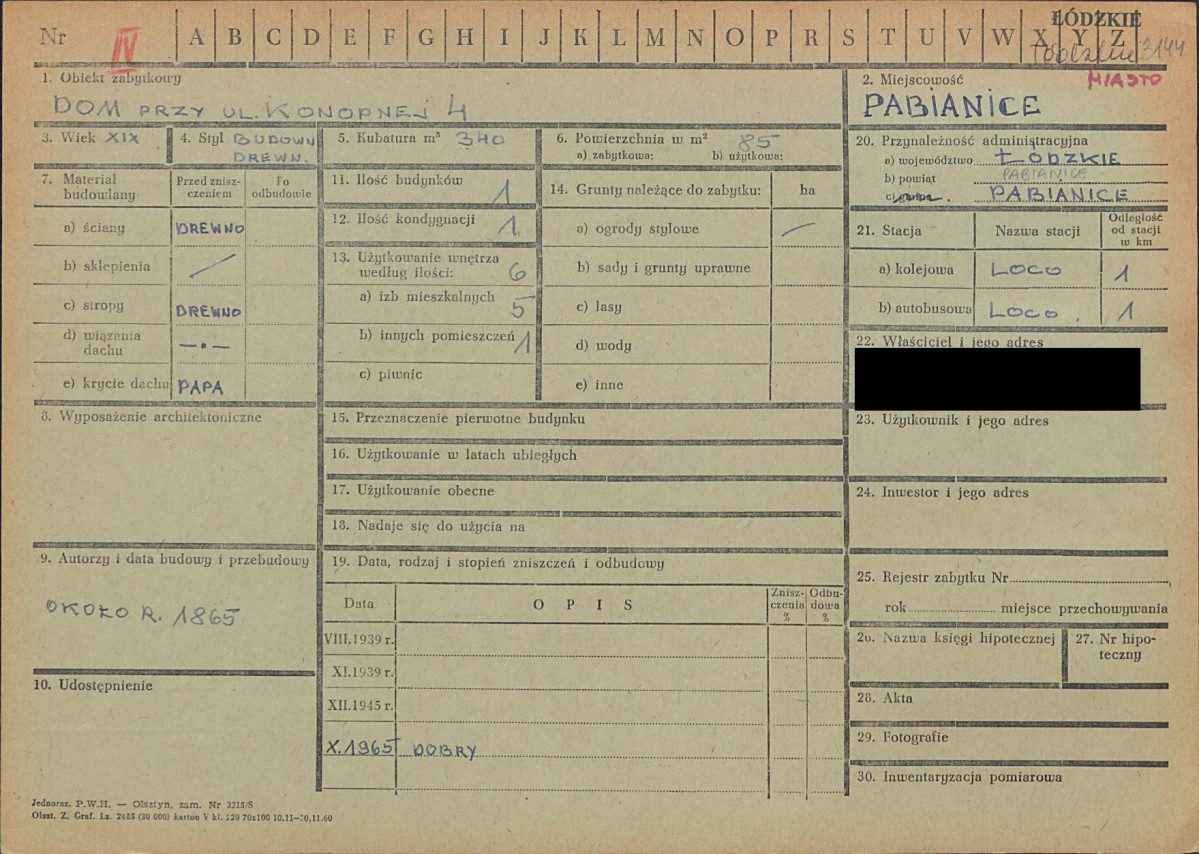 ŁÓDZKIE
Nr IV A B C D E F G H I J K L M N O P R S T U V W X Y Z
3144
1. Obiekt zabytkowy
DOM PRZY UL. KONOPNEJ 4
2. Miejscowość MIASTO
PABIANICE
3. Wiek XIX
4. Styl BUDOWN
DREWN.
5. Kubatura m³ 340
6. Powierzchnia w m² 85
a) zabytkowa: b) użytkowa:
20. Przynależność administracyjna
a) województwo ŁÓDZKIE
b) powiat PABIANICE
c) PABIANICE
7. Materiał
budowlany
Przed znisz-
czeniem
Po
odbudowie
a) ściany DREWNO
b) sklepienia —
c) stropy DREWNO
d) wiązenia
dachu —"—
e) krycie dachu PAPA
11. Ilość budynków 1
12. Ilość kondygnacji 1.
13. Użytkowanie wnętrza
według ilości: 6
a) izb mieszkalnych 5
b) innych pomieszczeń 1
c) piwnic
14. Grunty należące do zabytku: ha
a) ogrody stylowe —
b) sady i grunty uprawne
c) lasy
d) wody
e) inne
21. Stacja Nazwa stacji
Odległość
od stacji
w km
a) kolejowa LOCO 1
b) autobusowa LOCO . 1
22. Właściciel i jego adres
8. Wyposażenie architektoniczne
15. Przeznaczenie pierwotne budynku
16. Użytkowanie w latach ubiegłych
17. Użytkowanie obecne
18. Nadaje się do użycia na
23. Użytkownik i jego adres
24. Inwestor i jego adres
9. Autorzy i data budowy i przebudowy
OKOŁO R. 1865
10. Udostępnienie
19. Data, rodzaj i stopień zniszczeń i odbudowy
Data OPIS
Znisz-
czenia
%
Odbu-
dowa
%
VIII.1939 r.
XI.1939 r.
XII.1945 r.
X.1965 DOBRY
25. Rejestr zabytku Nr
rok miejsce przechowywania
26. Nazwa księgi hipotecznej
27. Nr hipo-
teczny
28. Akta
29. Fotografie
30. Inwentaryzacja pomiarowa
Jednoraz. P.W.H. — Olsztyn, zam. Nr 3215/S
Olszt. Z. Graf. Lz. 2486 (30 000) karton V kl. 220 70x100 10.11—20.11.60